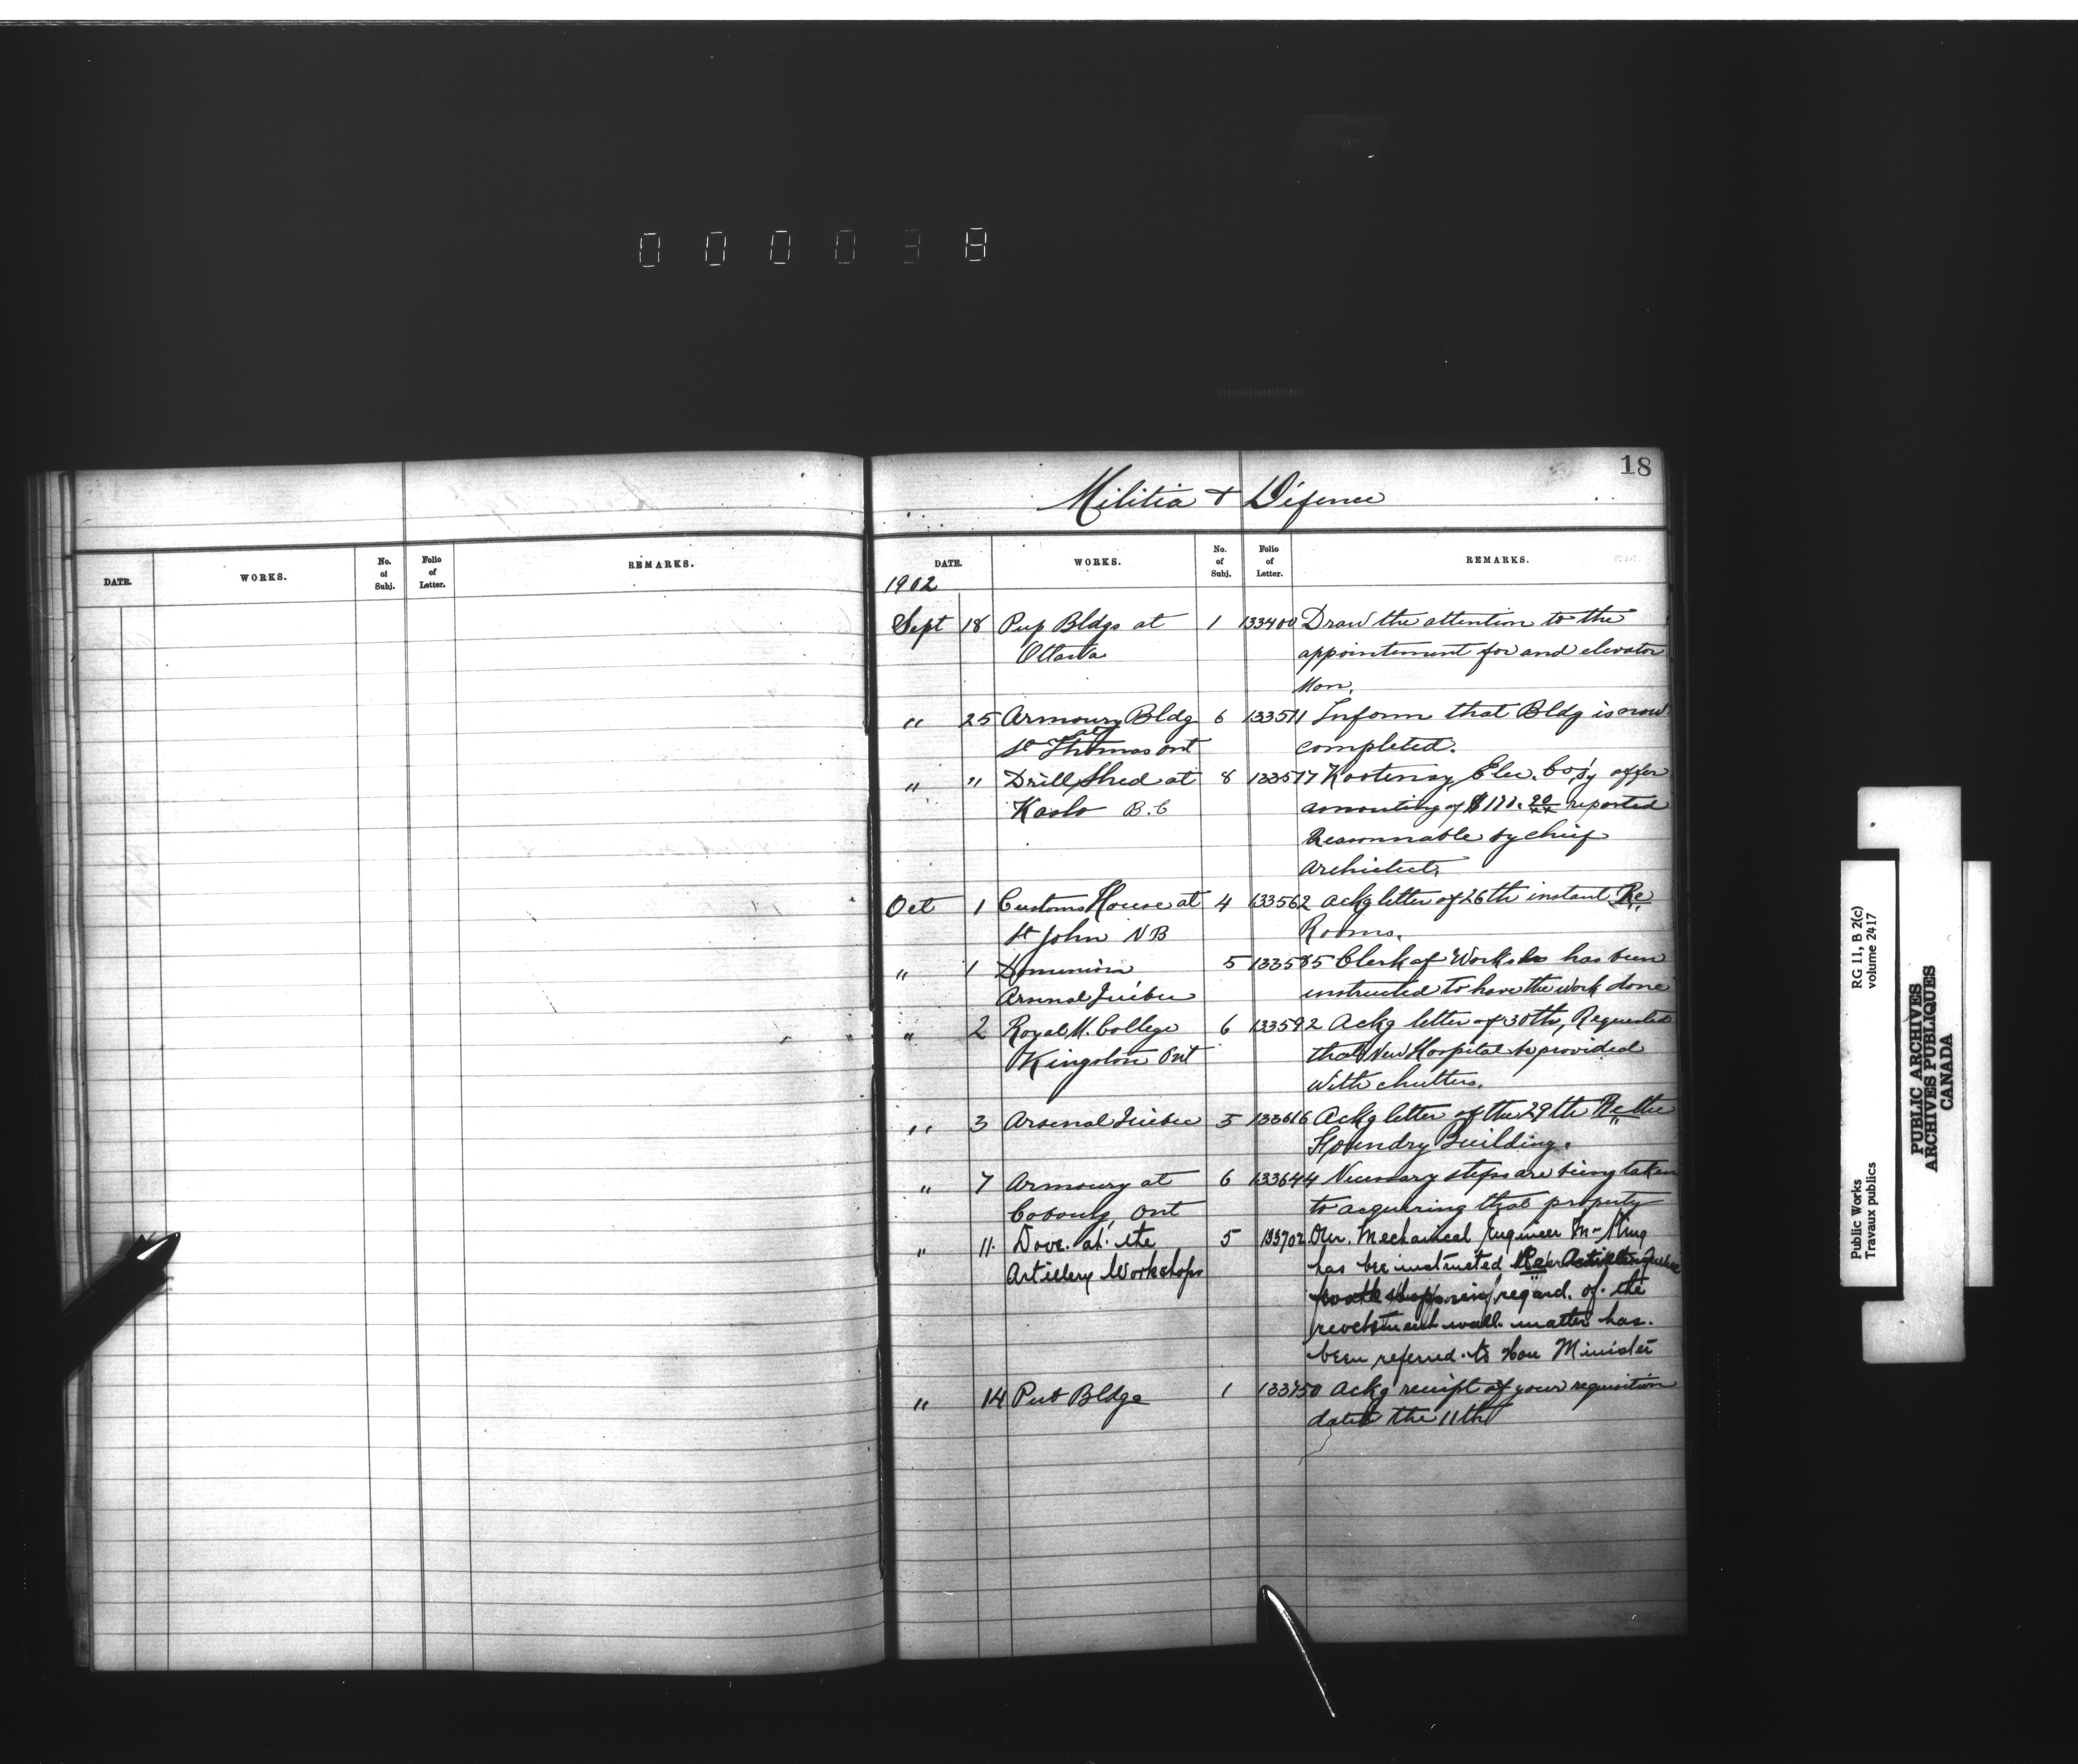 000038
18
Militia & Défence
DATE. WORKS. No. of Subj. Folio of Letter. REMARKS.
DATE. WORKS. No. of Subj. Folio of Letter. REMARKS.
1902
Sept 18 Pup Bldgs at 1 133400 Draw the attention to the
Ottawa appointement for and elevator
Man.
" 25 Armoury Bldg 6 133511 Inform that Bldg is now
at
St Thomas Ont completed.
" " Drill Shed at 8 133517 Kootenay Elec. Co'sy offer
Kaslo B.C amounting of $111.20/xx reported
Reasonnable by chief
Architect.
Oct 1 Customs House at 4 133562 Ackg letter of 26th instant Re
St John NB Rooms.
" 1 Dominion 5 133585 Clerk of Works has been
Arsenal Québec instructed to have the work done
" 2 Royal M. College 6 133592 Ackg letter of 30th, Requested
Kingston Ont that New Hospital be provided
with chutters.
" 3 Arsenal Québec 5 133616 Ackg letter of the 29th Re the
Foundry Building.
" 7 Armoury at 6 133644 Necessary steps are being taken
Cobourg Ont to acquiring that property
" 11 Dove. at the 5 133702 Our Mechanical Engineer Mr King
Artillery Workshops has bee instructed Re
regard of the
revetment wall matter has
been referred to Hon Minister
" 14 Pub Bldge 1 133750 Ackg receipt of your requisition
dated the 11th
Public Works
Travaux publics
RG 11, B 2(c)
volume 2417
PUBLIC ARCHIVES
ARCHIVES PUBLIQUES
CANADA